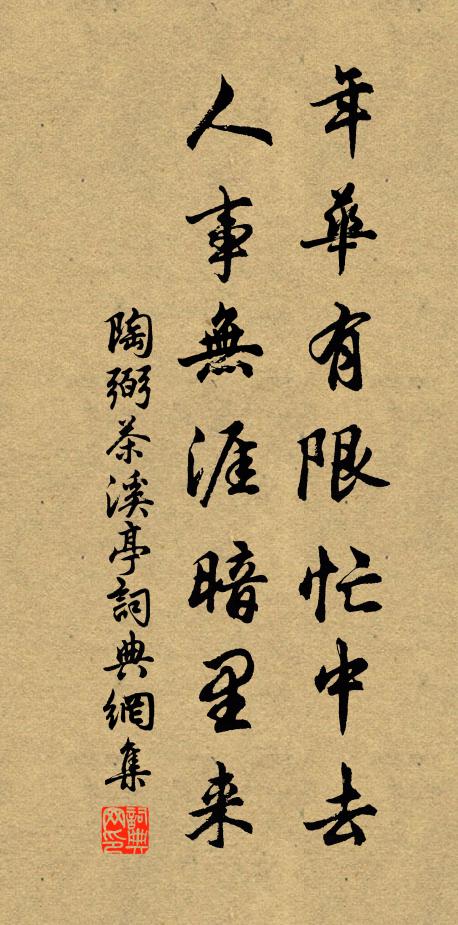 年華有限忙中去
人事無涯暗里来
陶弼茶溪亭詞典網集
詞典网印